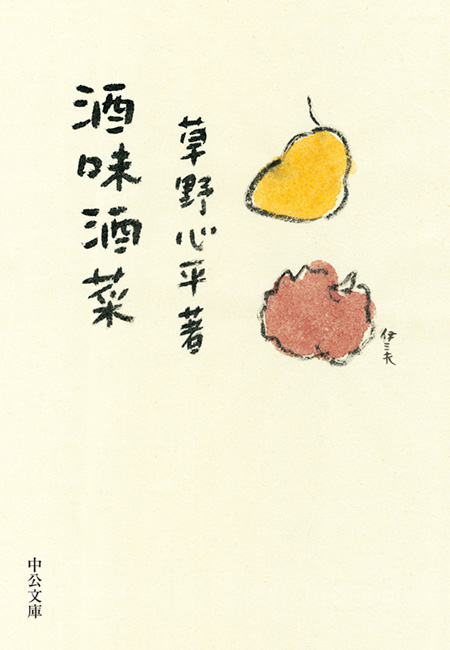 草野心平著
酒味酒菜
伊三夫
中公文庫